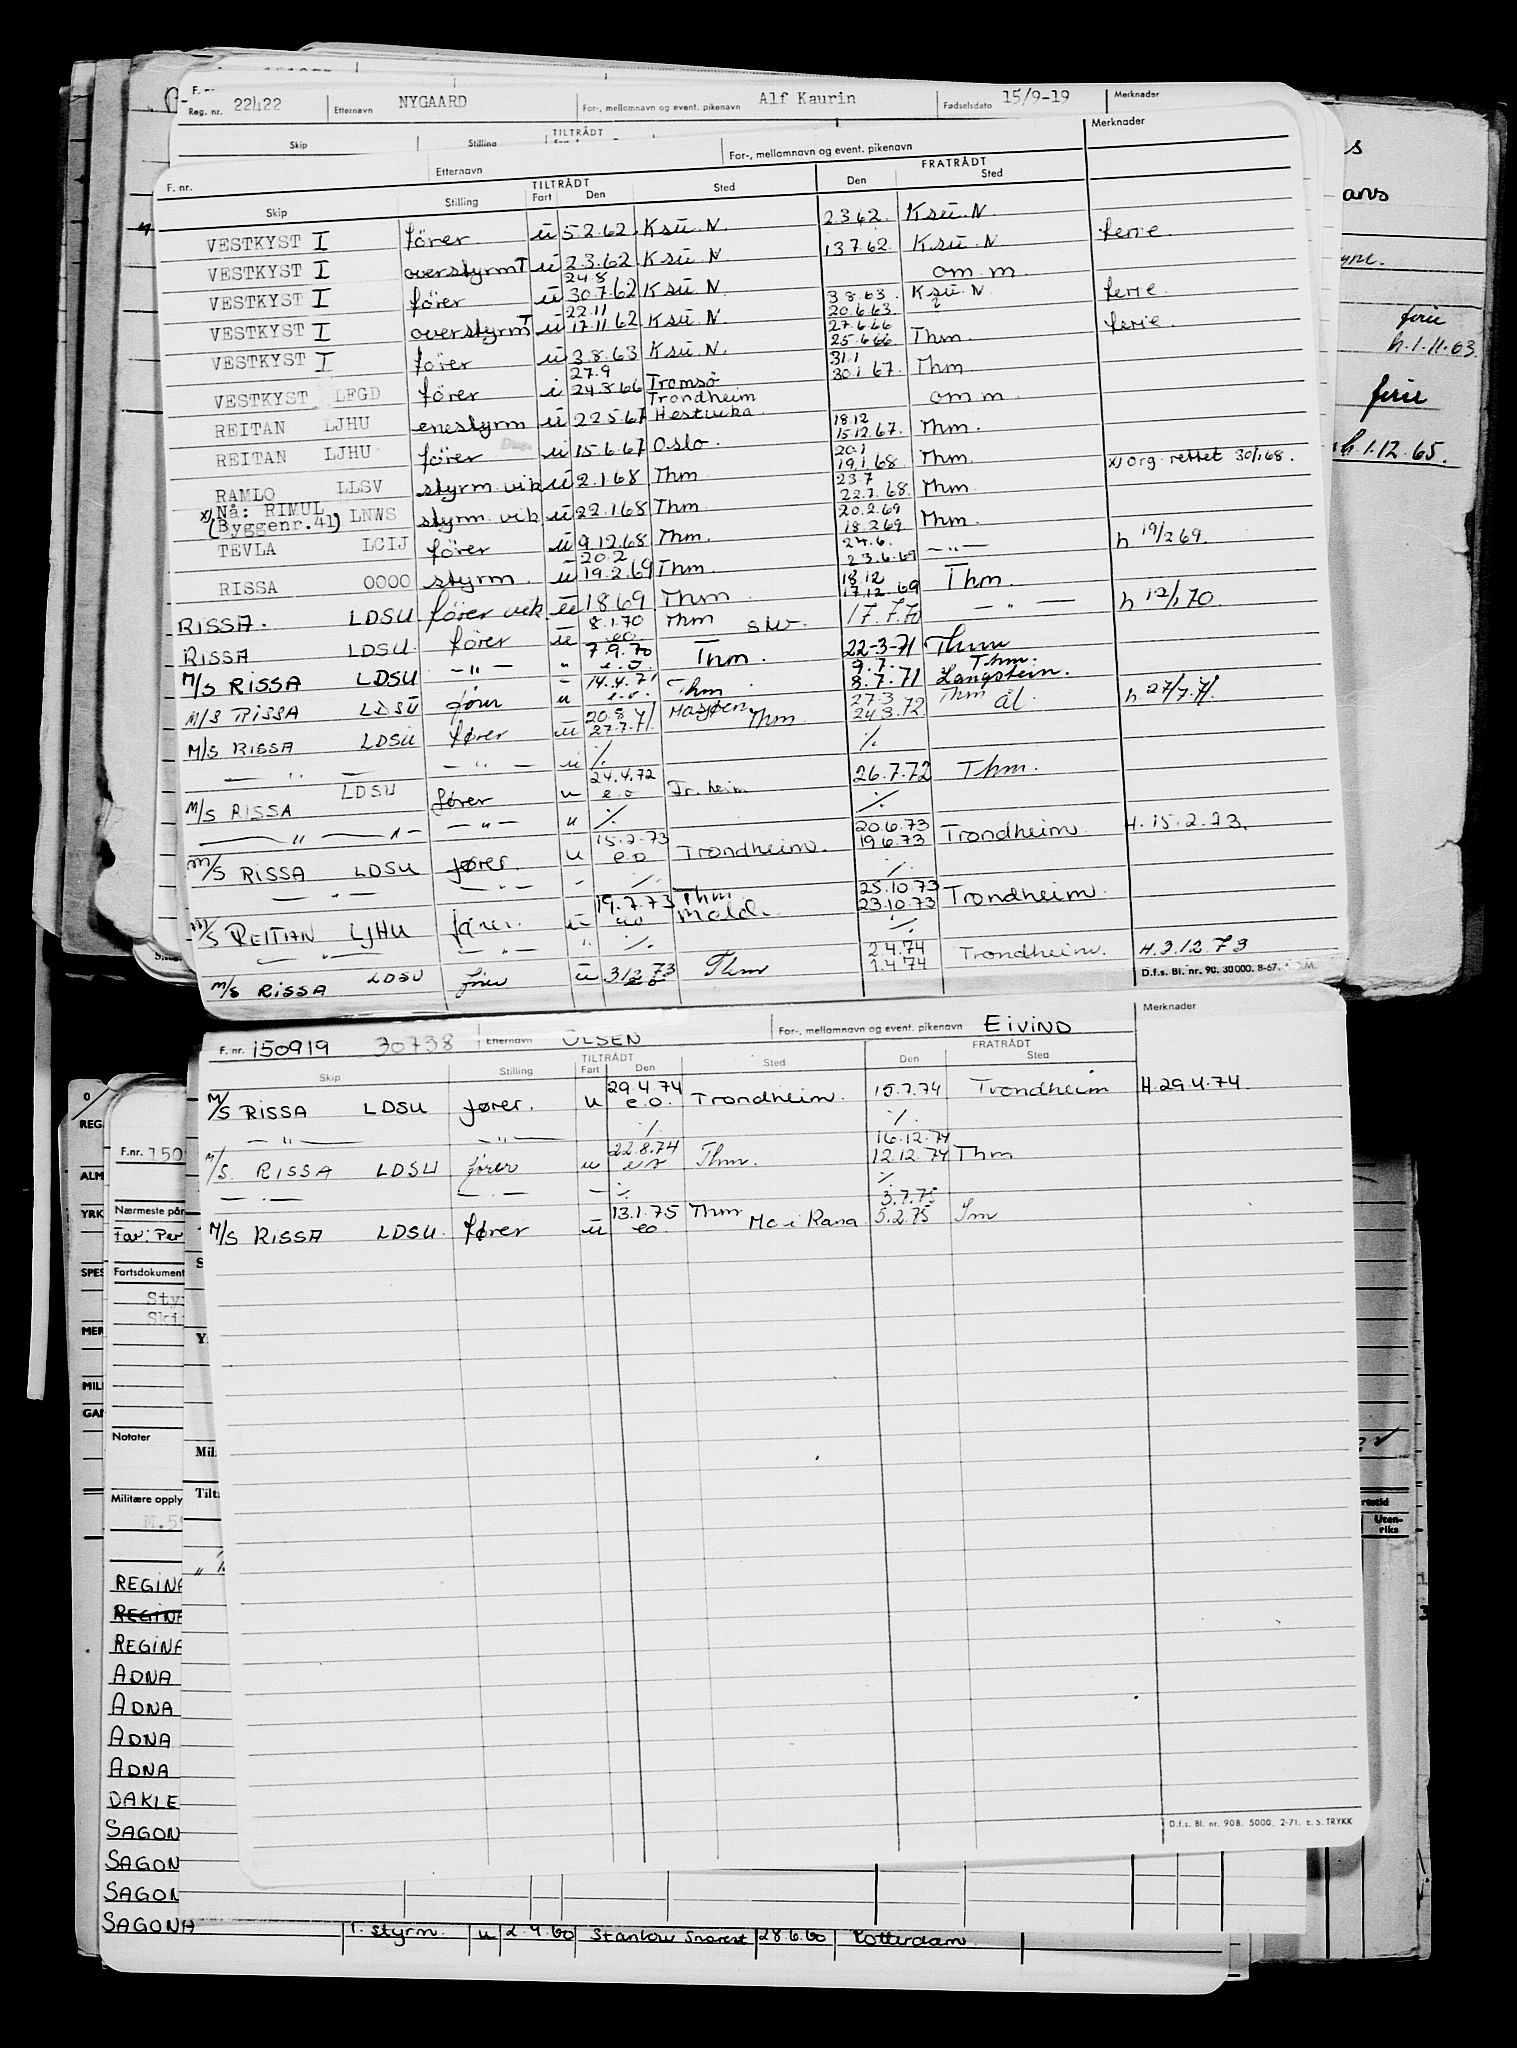 Reg. nr. 22422 Etternavn NYGAARD For-, mellomnavn og event. pikenavn Alf Kaurin Fødselsdato 15/9-19 Merknader
Skip Stilling TILTRÅDT
F. nr. Etternavn For-, mellomnavn og event. pikenavn Merknader
TILTRÅDT FRATRÅDT
Skip Stilling Fart Den Sted Den Sted
VESTKYST I fører. ū 5.2.62. Ksū. N. 2.3.62. Ksū. N.
VESTKYST I overstyrm ū 2.3.62 Ksū N 13.7.62. Ksū. N ferie.
24.8 om. m.
VESTKYST I fører ū 30.7.62 Ksū N 3.8.63. Ksū. N ferie.
22.11 20.6.63.
VESTKYST I overstyrm ū 17.11.62 Ksū. N. 27.6.66 ferie.
VESTKYST I fører ū 3.8.63 Ksū. N. 25.6.66 Thm.
27.9 31.1
VESTKYST LFGD fører i 24.8.66 Tromsø 30.1.67. Thm
Trondheim
REITAN LJHU enestyrm ū 22.5.67 Hestvika om m.
18.12
REITAN LJHU fører ū 15.6.67 Oslo. 15.12.67. Thm.
20.1
RAMLO LLSV styrm. vik ū 2.1.68 Thm 19.1.68 Thm. x) Org. rettet 30/1.68.
23.7
x) Nå: RIMUL LNWS styrm. vik ū 22.1.68 Thm 22.7.68. Thm
(Byggenr. 41) 20.2.69
TEVLA LCIJ fører ū 9.12.68 Thm. 18.2.69 Thm.
20.2 24.6.
RISSA OOOO styrm. ū 19.2.69 Thm. 23.6.69 — " — h 19/2 69.
18.12
RISSA. LDSU fører vik. ū 1.8.69 Thm 17.12.69 Thm.
RISSA LDSU fører ū 8.1.70 Thm 17.7.70 — " — h 12/1 70.
e.o.
M/S RISSA LDSU — " — " 7.9.70 Thm. 22-3-71 Thm
e.o. 9.7. Thm.
M/S RISSA LDSU fører u 14.4.71 Thm 8.7.71 Langstein.
e.o. 27.3 Thm
M/S RISSA LDSU fører ū 20.8.71 Mosjøen Thm 24.3.72. Ål. h 27/7.71.
27.7.71.
— " — — " — u ./. ./.
M/S RISSA LDSU fører u 24.4.72 Tr. heim 26.7.72 Thm.
e.o
— " — " — — " — u ./. ./.
15.2.73 20.6.73
M/S RISSA LDSU fører. u e.o Trondheim. 19.6.73 Trondheim. H. 15.2.73.
— " — — " — - ./. ./.
19.7.73 Thm 25.10.73
M/S REITAN LJHU fører. ū e.o Mold. 23.10.73 Trondheim.
— " — — " — " ./. ./.
2.4.74
M/S RISSA LDSU fører ū 3.12.73 Thm 1.4.74 Trondheim. H. 3.12.73
e o
D.f.s. Bl. nr. 90. 30000. 8-67.
F. nr. 150919 30738 Etternavn OLSEN For-, mellomnavn og event. pikenavn EIVIND Merknader
TILTRÅDT FRATRÅDT
Skip Stilling Fart Den Sted Den Sted
29.4.74
M/S RISSA LDSU fører. u e.o. Trondheim. 15.7.74 Trondheim H. 29.4.74.
— " — — " — ./. ./.
22.8.74 16.12.74
M/S. RISSA LDSU fører u e o Thm. 12.12.74 Thm
— " — — " — - ./. ./.
13.1.75 3.7.75
M/S RISSA LDSU. fører ū eo. Thm Mo i Rana 5.2.75
D.f.s. Bl. nr. 90B. 5000. 2-71. E. S. TRYKK
ferie
h.1.11.63.
ferie
h 1.12.65.
Uten-
riks
REG
ALM
YRK
SPES
MER
MILI
F.nr. 150
Nærmeste pår
Far: Per
Fartsdokument
Sty
Ski
Notater
Militære opply
Mil
Tilt
REGINA
REGINA
REGINA
ADNA
ADNA
ADNA
ADNA
DAKLE
SAGON
SAGON
SAGON
SAGONA 1. styrm. u 2.4.60 Stanlow 28.6.60 Rotterdam.